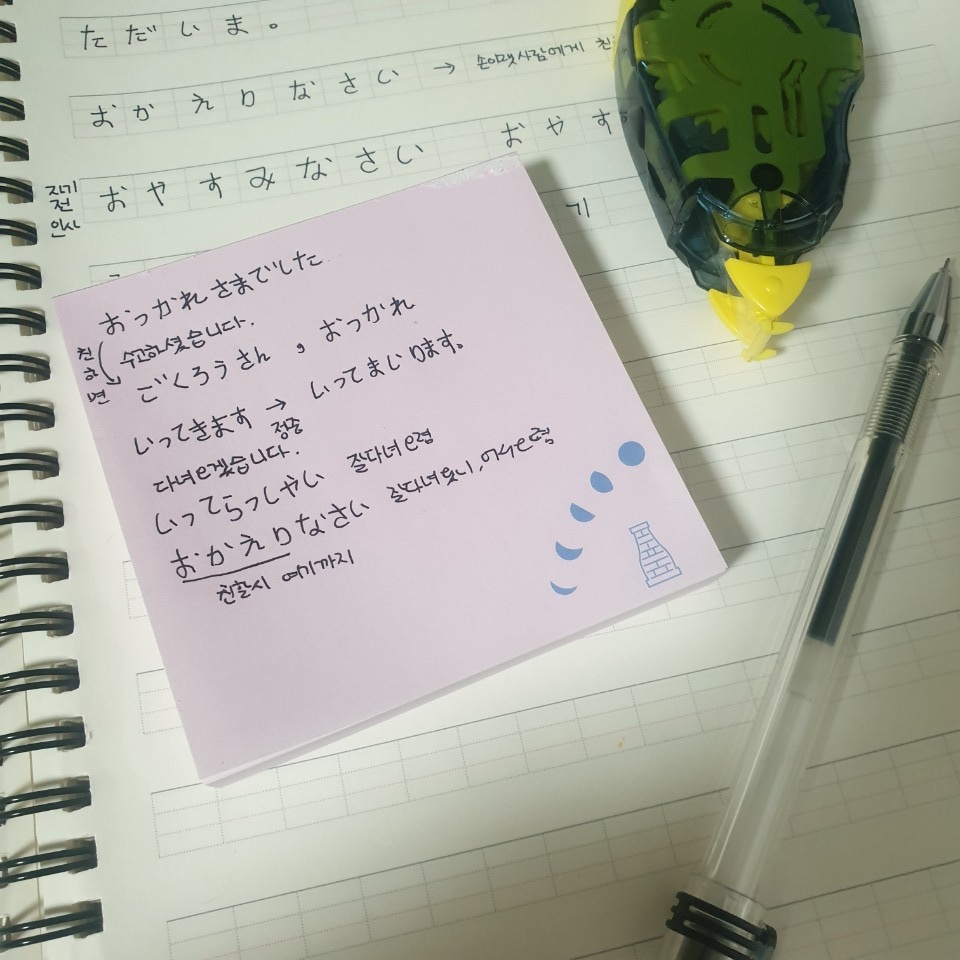 ただいま。
おかえりなさい → 손아랫사람에게 친
자기 전 인사 おやすみなさい おやす
기
おっかれさまでした
친하면 수고하셨습니다.
ごくろうさん , おっかれ
いってきます → いってまいります。
정중
다녀오겠습니다.
いってらっしゃい 잘다녀오렴
おかえりなさい 잘다녀왔니, 어서오렴
친할시 여기까지